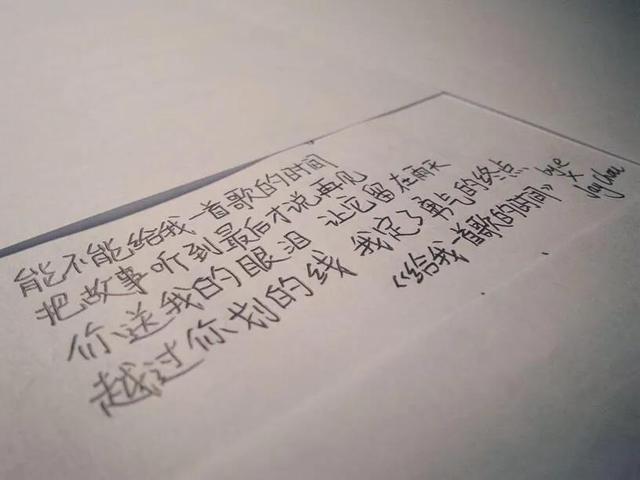 能不能给我一首歌的时间
把故事听到最后才说再见
你送我的眼泪 让它留在雨天
越过你划的线 我定了勇气的终点
《给我一首歌的时间》 bye
×
Jay Chou